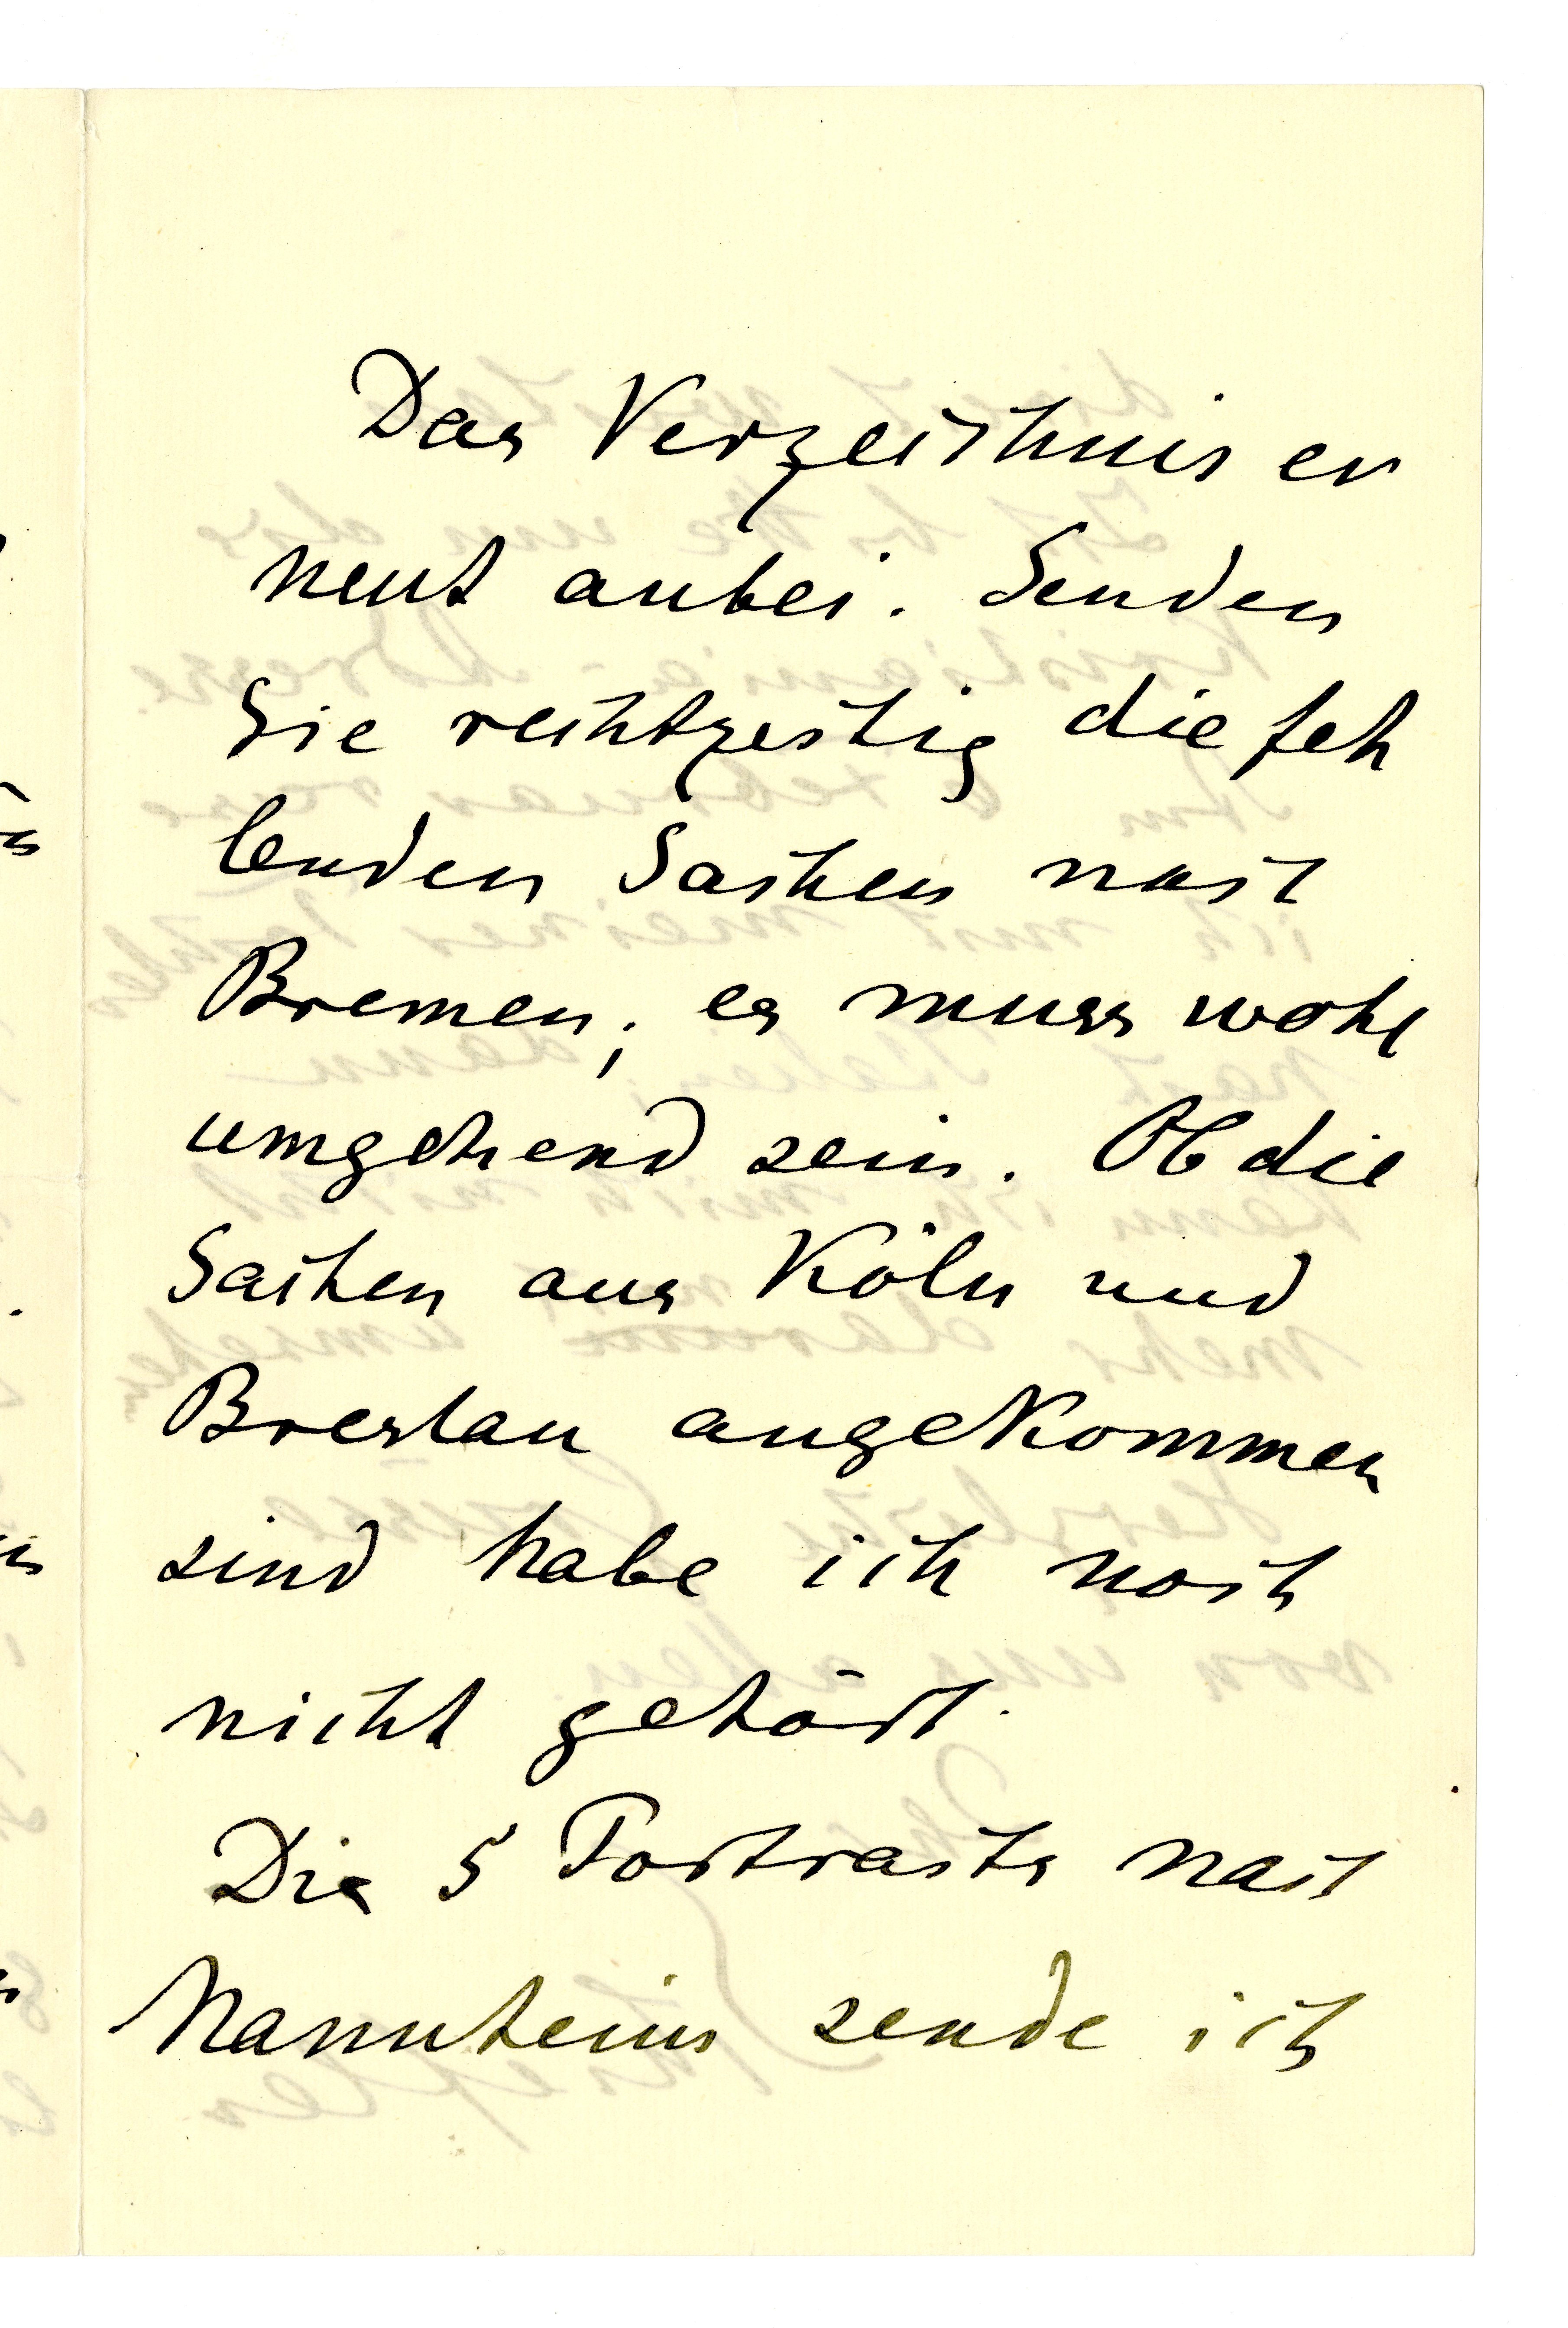 Das Verzeichnis er
neut anbei. Senden
Sie rechtzeitig die feh
lenden Sachen nach
Bremen; es muss wohl
umgehend sein. Ob die
Sachen aus Köln und
Breslau angekommen
sind habe ich noch
nicht gehört.
Die 5 Portraits nach
Mannheim sende ich